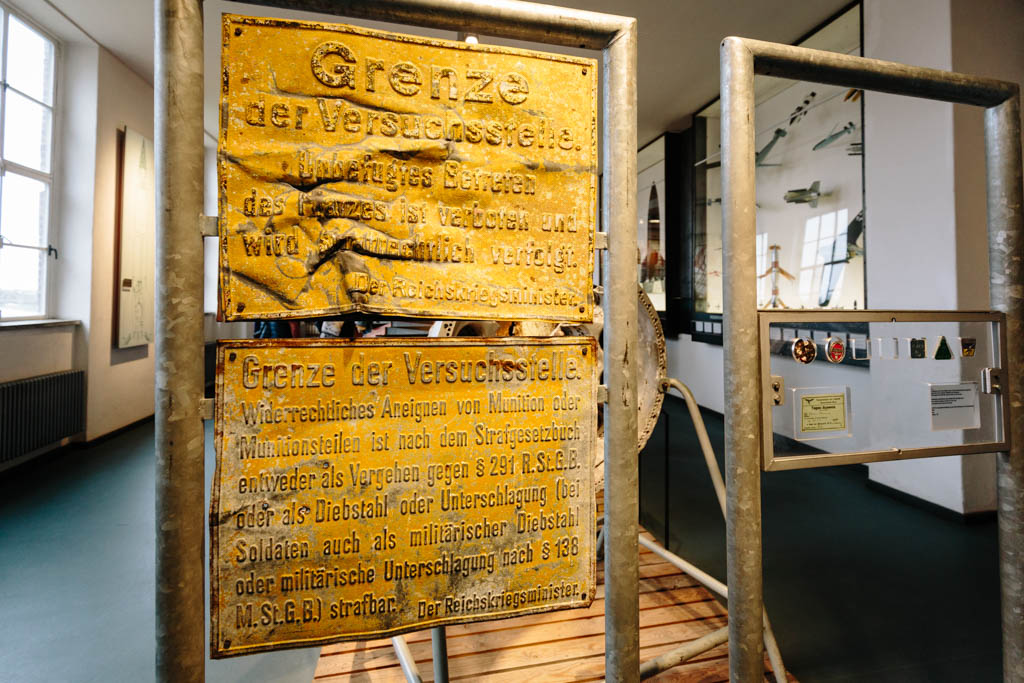 Grenze
der Versuchsstelle.
Unbefugtes Betreten
des Platzes ist verboten und
wird strafrechtlich verfolgt.
Der Reichskriegsminister.
Grenze der Versuchsstelle.
Widerrechtliches Aneignen von Munition oder
Munitionsteilen ist nach dem Strafgesetzbuch
entweder als Vergehen gegen § 291 R.St.G.B.
oder als Diebstahl oder Unterschlagung (bei
Soldaten auch als militärischer Diebstahl
oder militärische Unterschlagung nach § 138
M.St.G.B.) strafbar. Der Reichskriegsminister.